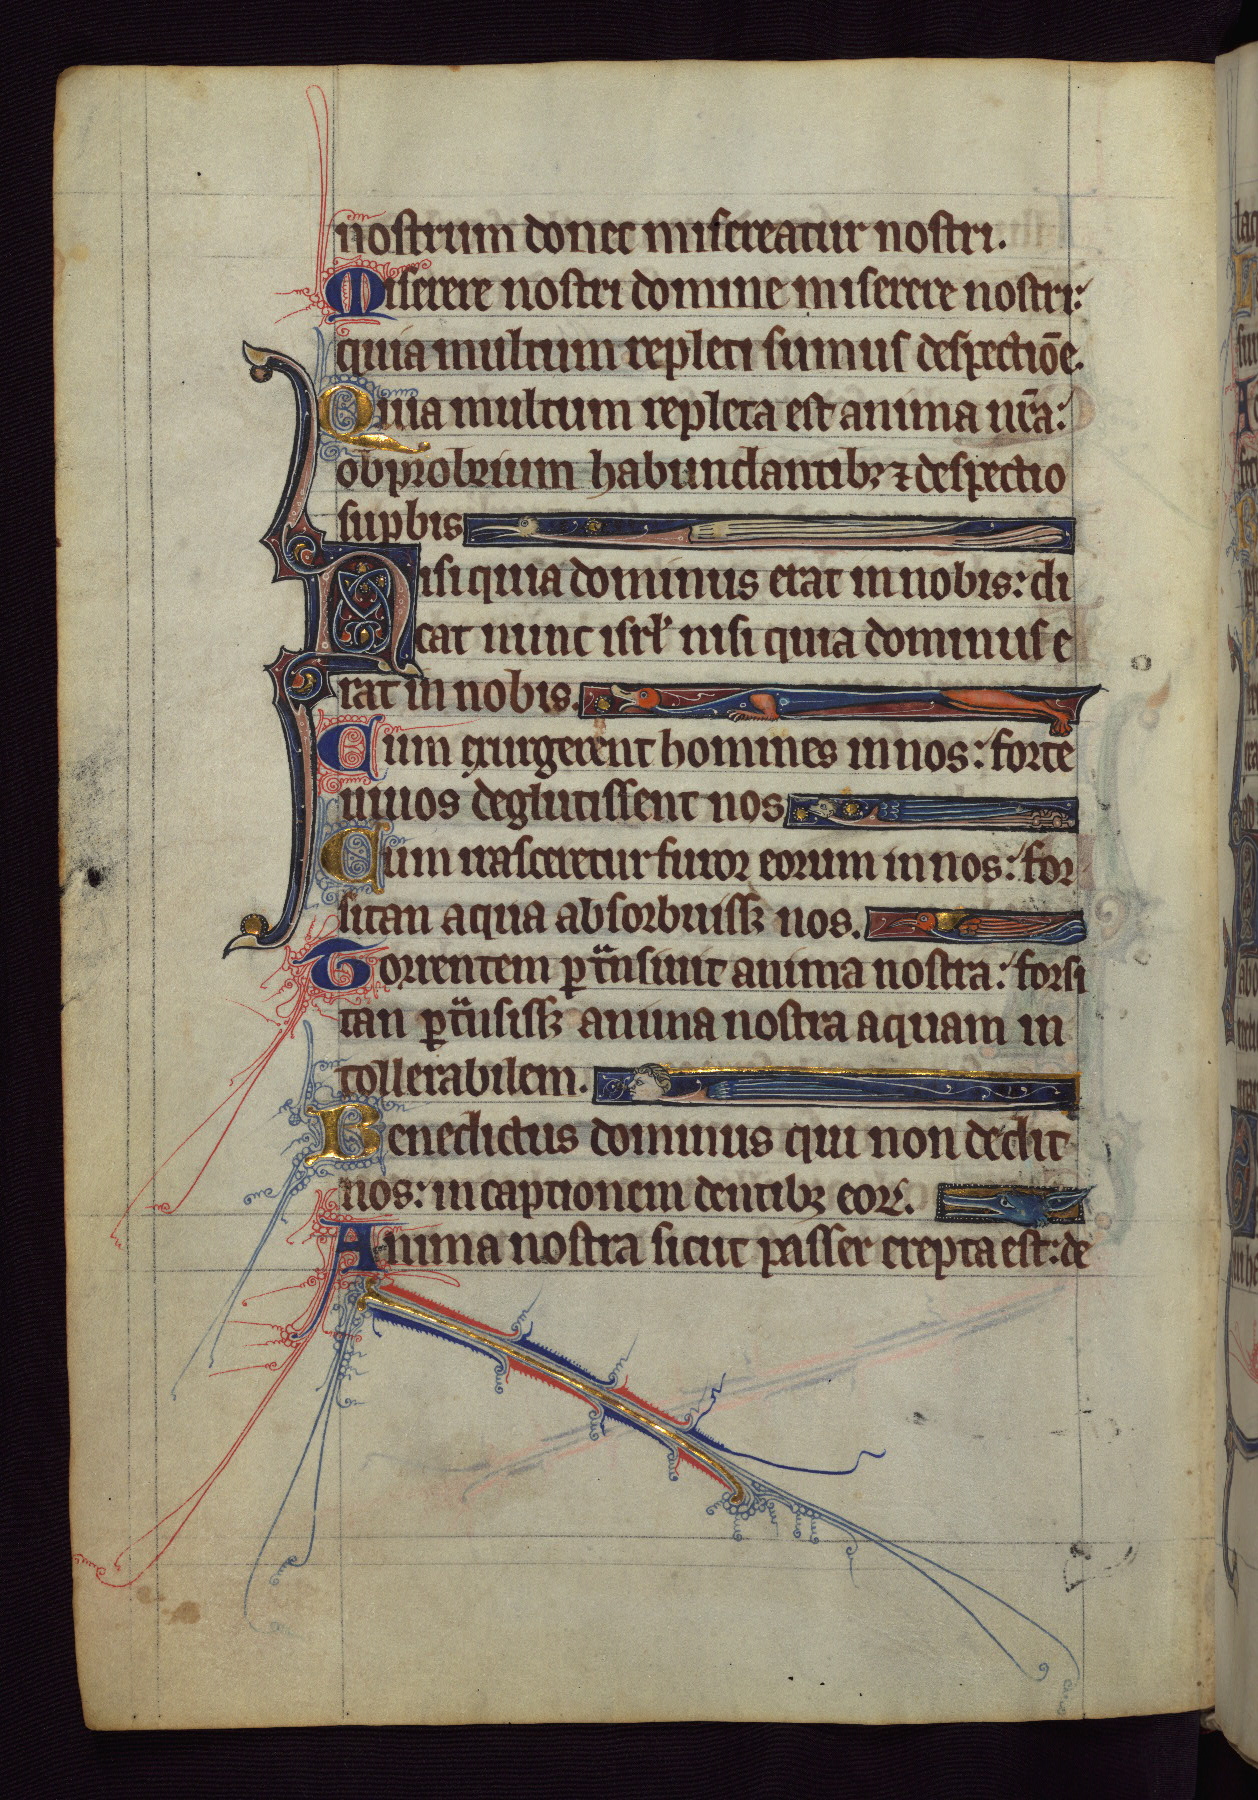 nostrum donec misereatur nostri.
Miserere nostri domine miserere nostri:
quia multum repleti sumus despectiōe.
Quia multum repleta est anima nr̄a:
obprobrium habundantibꝫ ⁊ despectio
suꝑbis
Nisi quia dominus erat in nobis: di
cat nunc isrl̕ nisi quia dominus e
rat in nobis.
Cum exurgerent homines in nos: forte
uiuos deglutissent nos
Cum irasceretur furor eorum in nos: for
sitan aqua absorbuissꝫ nos.
Torrentem ꝑtͣnsiuit anima nostra: forsi
tan ꝑtͣnsissꝫ anima nostra aquam in
tollerabilem.
Benedictus dominus qui non dedit
nos: in captionem dentibꝫ eoꝝ.
Anima nostra sicut passer erepta est: de